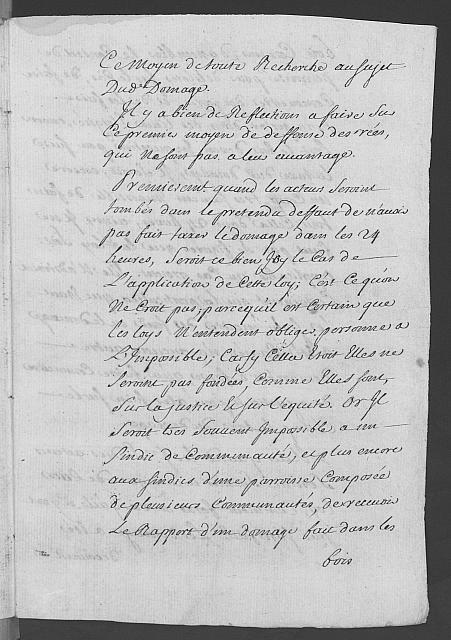 Ce Moyen de toute Recherche au sujet
Dud.t Domage.
Il y a bien de Reflections a faire sur
Ce premier moyen de deffense des rées,
qui ne sont pas a leur avantage.
Premierement quand les acteurs seroint
tombés dans le pretendu deffaut de n'avoir
pas fait taxer le domage dans les 24
heures, seroit ce bien Icy le Cas de
L'application de Cette loy; C'est Ce qu'on
Ne Croit pas; parcequil est Certain que
les loys N'entendent obliger personne a
L'Impossible; Car sy Cella étoit Elles ne
Seroint pas fondées, Comme Elles sont,
Sur la justice Et sur l'équité. Or Il
seroit tres souvent Impossible a un
Sindic de Communauté, et plus encore
aux sindics d'une parroisse Composée
de plousieurs Communautés, de recevoir
Le Rapport d'un domage fait dans les
bois